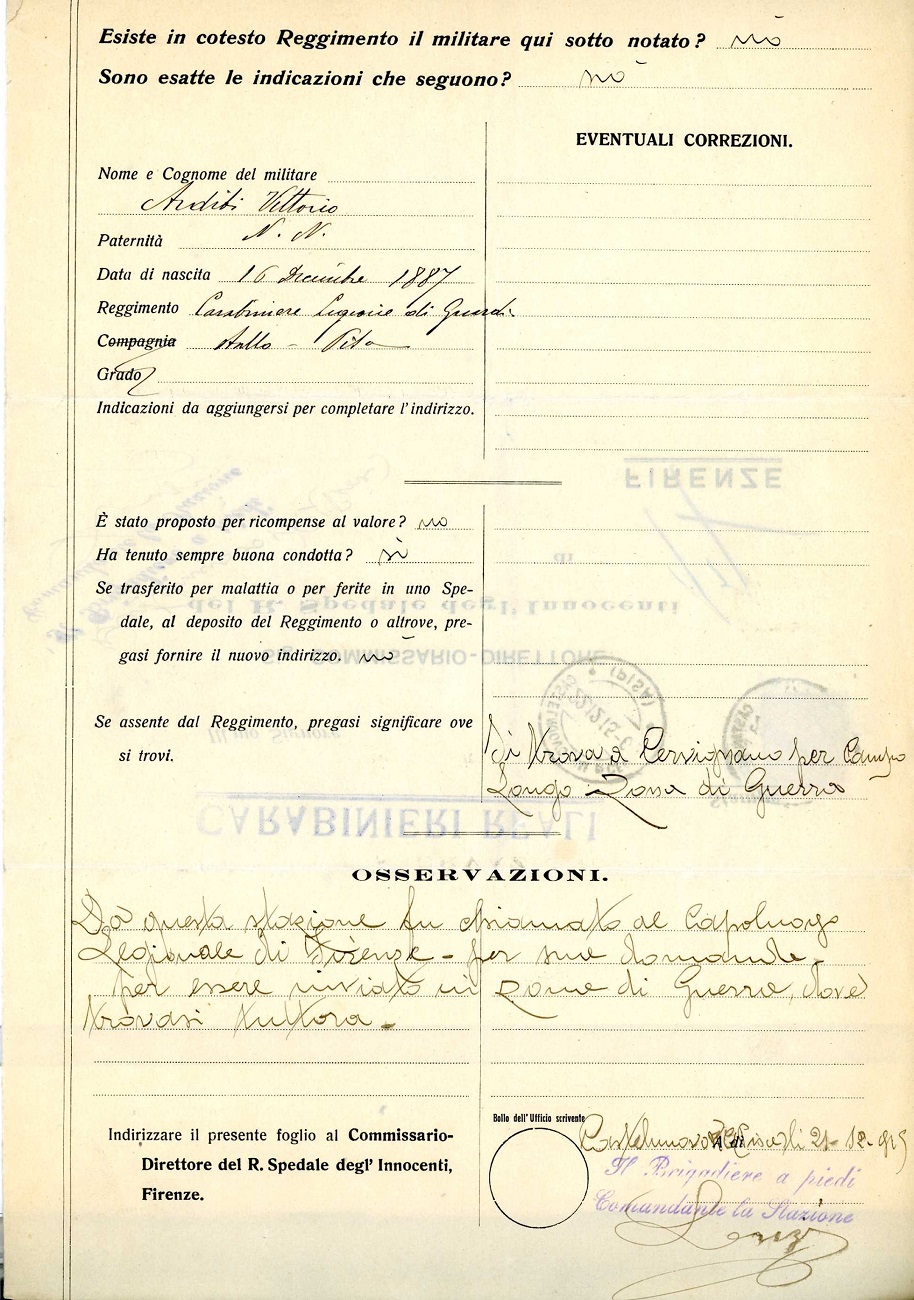 Esiste in cotesto Reggimento il militare qui sotto notato? no
Sono esatte le indicazioni che seguono? no
EVENTUALI CORREZIONI.
Nome e Cognome del militare
Vittorio
Paternità N. N.
Data di nascita 16 Dicembre 1887
Reggimento Carabiniere Legione di
Compagnia
Grado
Indicazioni da aggiungersi per completare l'indirizzo.
FIRENZE
È stato proposto per ricompense al valore? no
Ha tenuto sempre buona condotta? sì
di
Se trasferito per malattia o per ferite in uno Spe-
del R. Spedale degl' Innocenti
dale, al deposito del Reggimento o altrove, pre-
gasi fornire il nuovo indirizzo. no
COMMISSARIO-DIRETTORE
Se assente dal Reggimento, pregasi significare ove
si trovi.
Si trova a Cervignano per Campo
Longo Zona di Guerra
CARABINIERI REALI
OSSERVAZIONI.
Da questa stazione fu chiamato al Capoluogo
Legionale di Firenze - per sua domanda -
per essere inviato in zona di Guerra, dove
trovasi tuttora -
Bollo dell' Ufficio scrivente
Indirizzare il presente foglio al Commissario-
Direttore del R. Spedale degl' Innocenti,
Firenze.
21-12-915
Il Brigadiere a piedi
Comandante la Stazione